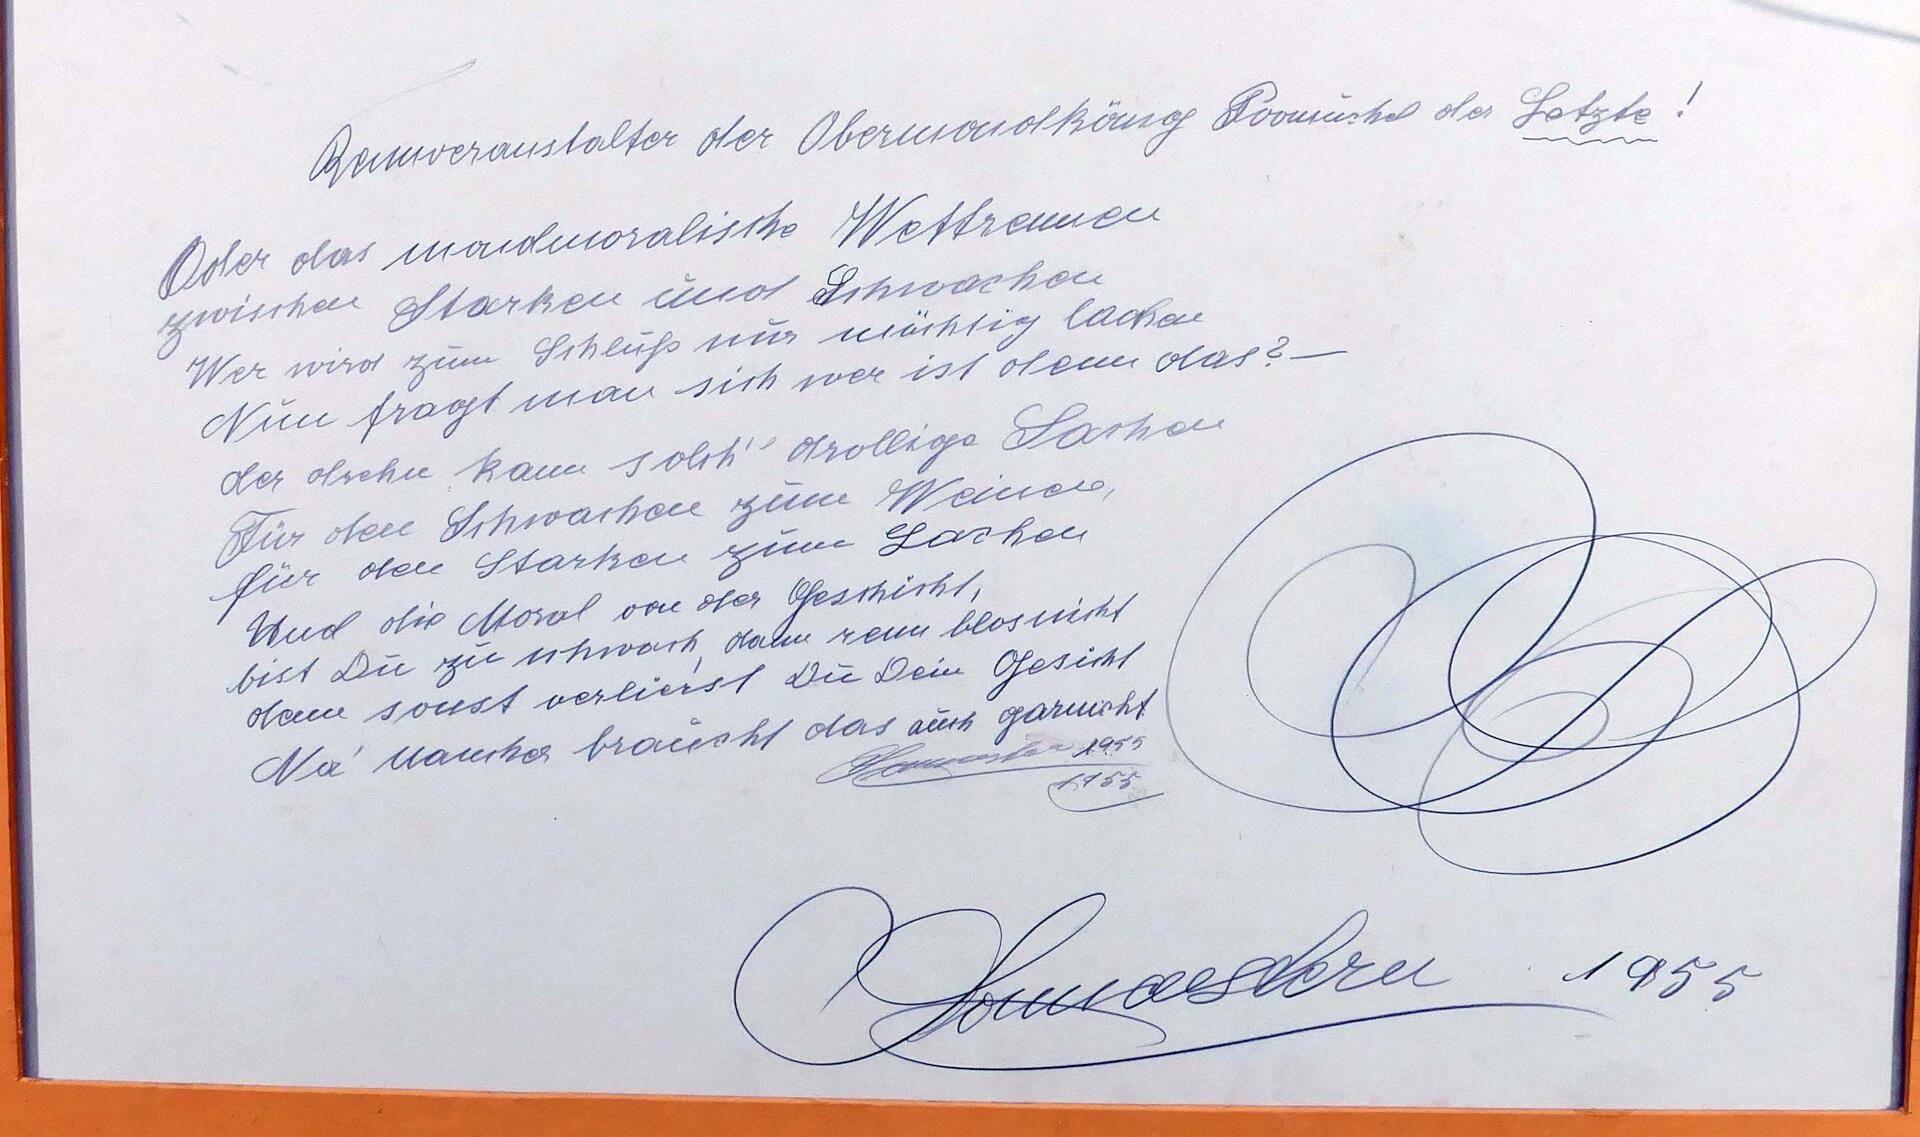 Rennveranstalter der Obermondkönig der Letzte!
Oder das mondmoralische Wettrennen
zwischen Starken und Schwachen
Wer wird zum Schluß nur mächtig lachen
Nun fragt man sich wer ist denn das?—
der drehn kann solch' drollige Sachen
Für den Schwachen zum Weinen,
für den Starken zum Lachen
Und die Moral von der Geschicht,
bist Du zu schwach, dann renn blos nicht
denn sonst verlierst Du Dein Gesicht
Na' Mancher braucht das auch garnicht
1955
1955
Sonnenstern 1955